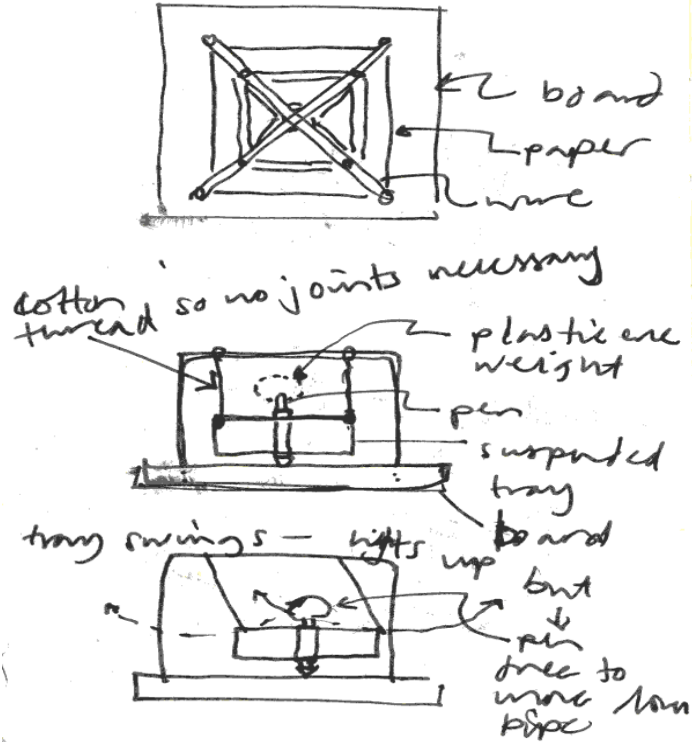 board
paper
wire
cotton so no joints necessary
thread
plasticene
weight
pen
suspended
tray
board
tray swings — lifts up
but
pen
free to
move down
pipe